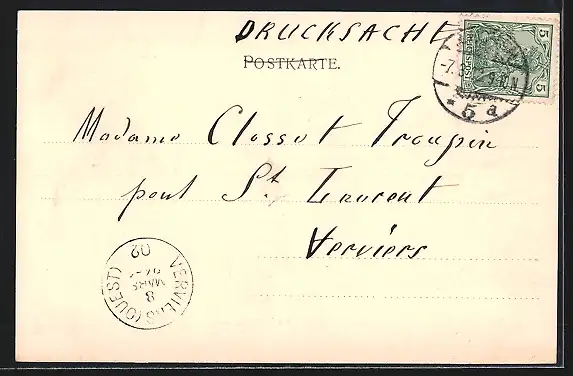 DRUCKSACHE
POSTKARTE.
5 REICHSPOST 5
-7.3.
* 5 a
Madame Closset Troupin
pont St. Laurent
Verviers
VERVIERS (OUEST)
8
MARS
02